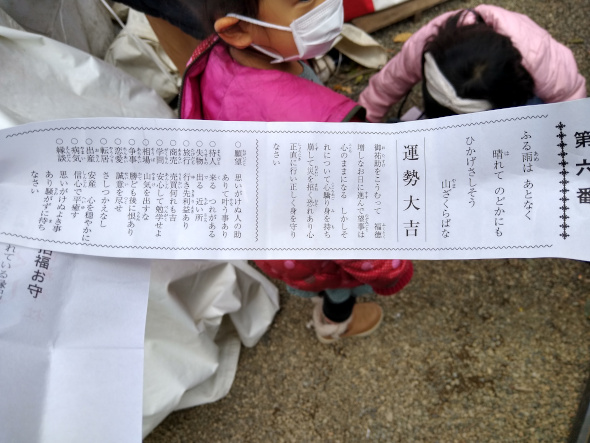 第六番
ふる雨は あとなく
晴れて のどかにも
ひかげさしそう
山ざくらばな
運勢大吉
御祐助をこうむって 福徳
増しなお日に進んで望事は
心のままになる しかしそ
れについて心驕り身を持ち
崩して災を招く恐れあり心
正直に行い正しく身を守り
なさい
○願望 思いがけぬ人の助
ありて叶う事あり
○待人 来る つれがある
○失物 出る 低い所
○旅行 行き先利益あり
○商売 売買何れも吉
○学問 安心して勉学せよ
○相場 山気を出すな
○争事 勝ども後に恨あり
○恋愛 誠意を尽せ
○転居 さしつかえなし
○出産 安産 心を穏やかに
○病気 信心で平癒す
○縁談 思いがけぬよき事
あり騒がずに待ち
なさい
招福お守
れている縁起